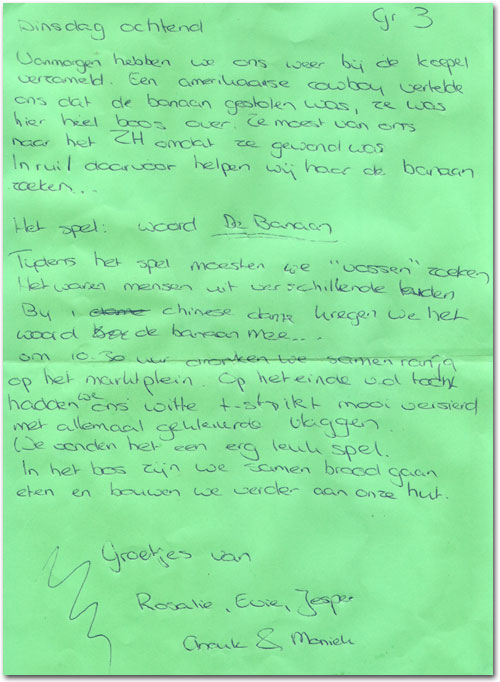 Dinsdag ochtend Gr 3
Vanmorgen hebben we ons weer bij de koepel
verzameld. Een amerikaanse cowboy vertelde
ons dat de banaan gestolen was, ze was
hier heel boos over. Ze moest van ons
naar het ZH omdat ze gewond was
In ruil daarvoor helpen wij haar de banaan
zoeken...
Het spel: woord De Banaan
Tijdens het spel moesten we "vossen" zoeken
Het waren mensen uit verschillende landen
Bij 1 chinese dame kregen we het
woord de banaan mee...
om 10.30 uur dronken we samen ranja
op het marktplein. Op het einde v.d tocht
hadden we ons witte t-shirt mooi versierd
met allemaal gekleurde vlaggen.
We vonden het een erg leuk spel.
In het bos zijn we samen brood gaan
eten en bouwen we verder aan onze hut.
Groetjes van
Rosalie, Evie, Jesper
& Moniek